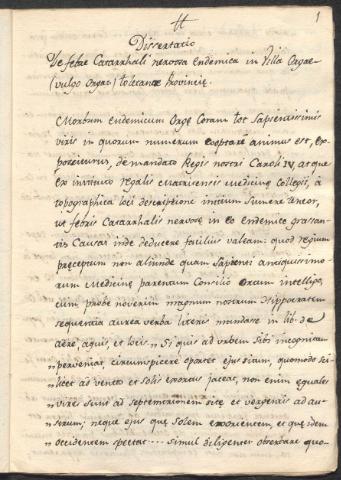 1
Dissertatio
De febre Catarrhali nervosa Endemica in Villa Orgae
(vulgo Orgaz) toletanae Provinciae.
Morbum endemicum Orgae Coram tot Sapientissimis
viris in quorum numerum cooptare animus est, ex-
positurus, de mandato Regis nostri Caroli IV, atque
ex instituto regalis Matritensis medicinae Collegii, à
topographica loci descriptione initium sumere aveor,
ut febris Catarrhalis nervosae in eo endemice grasan-
tis Causas inde deducere facilius valeam: quod regium
praeceptum non aliunde quam Sapientis antiquissimo-
rum Medicinae parentum Consilio ortum intelligo,
cum probe noverim magnum nostrum Hippocratem
sequentia aurea verba literis mandare in lib. de
aëre, aquis, et locis. Si quis ad urbem Sibi incognitam
"perveniat, circumspicere oportet ejus situm, quomodo sci-
"licet ad ventos et Solis exortus jaceat, non enim equales
"vires sunt ad septemtrionem sitae et vergentis ad au-
"strum; neque ejus quae Solem exorientem, et quae idem
"occidentem spectat... simul diligenter observare quo-